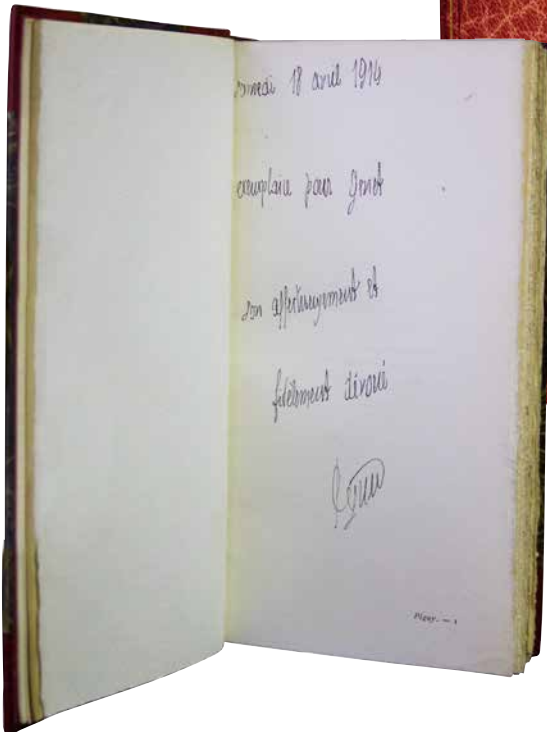 samedi 18 avril 1914
exemplaire pour Genet
son affectueusement et
fidèlement dévoué
Péguy
Péguy. — 1